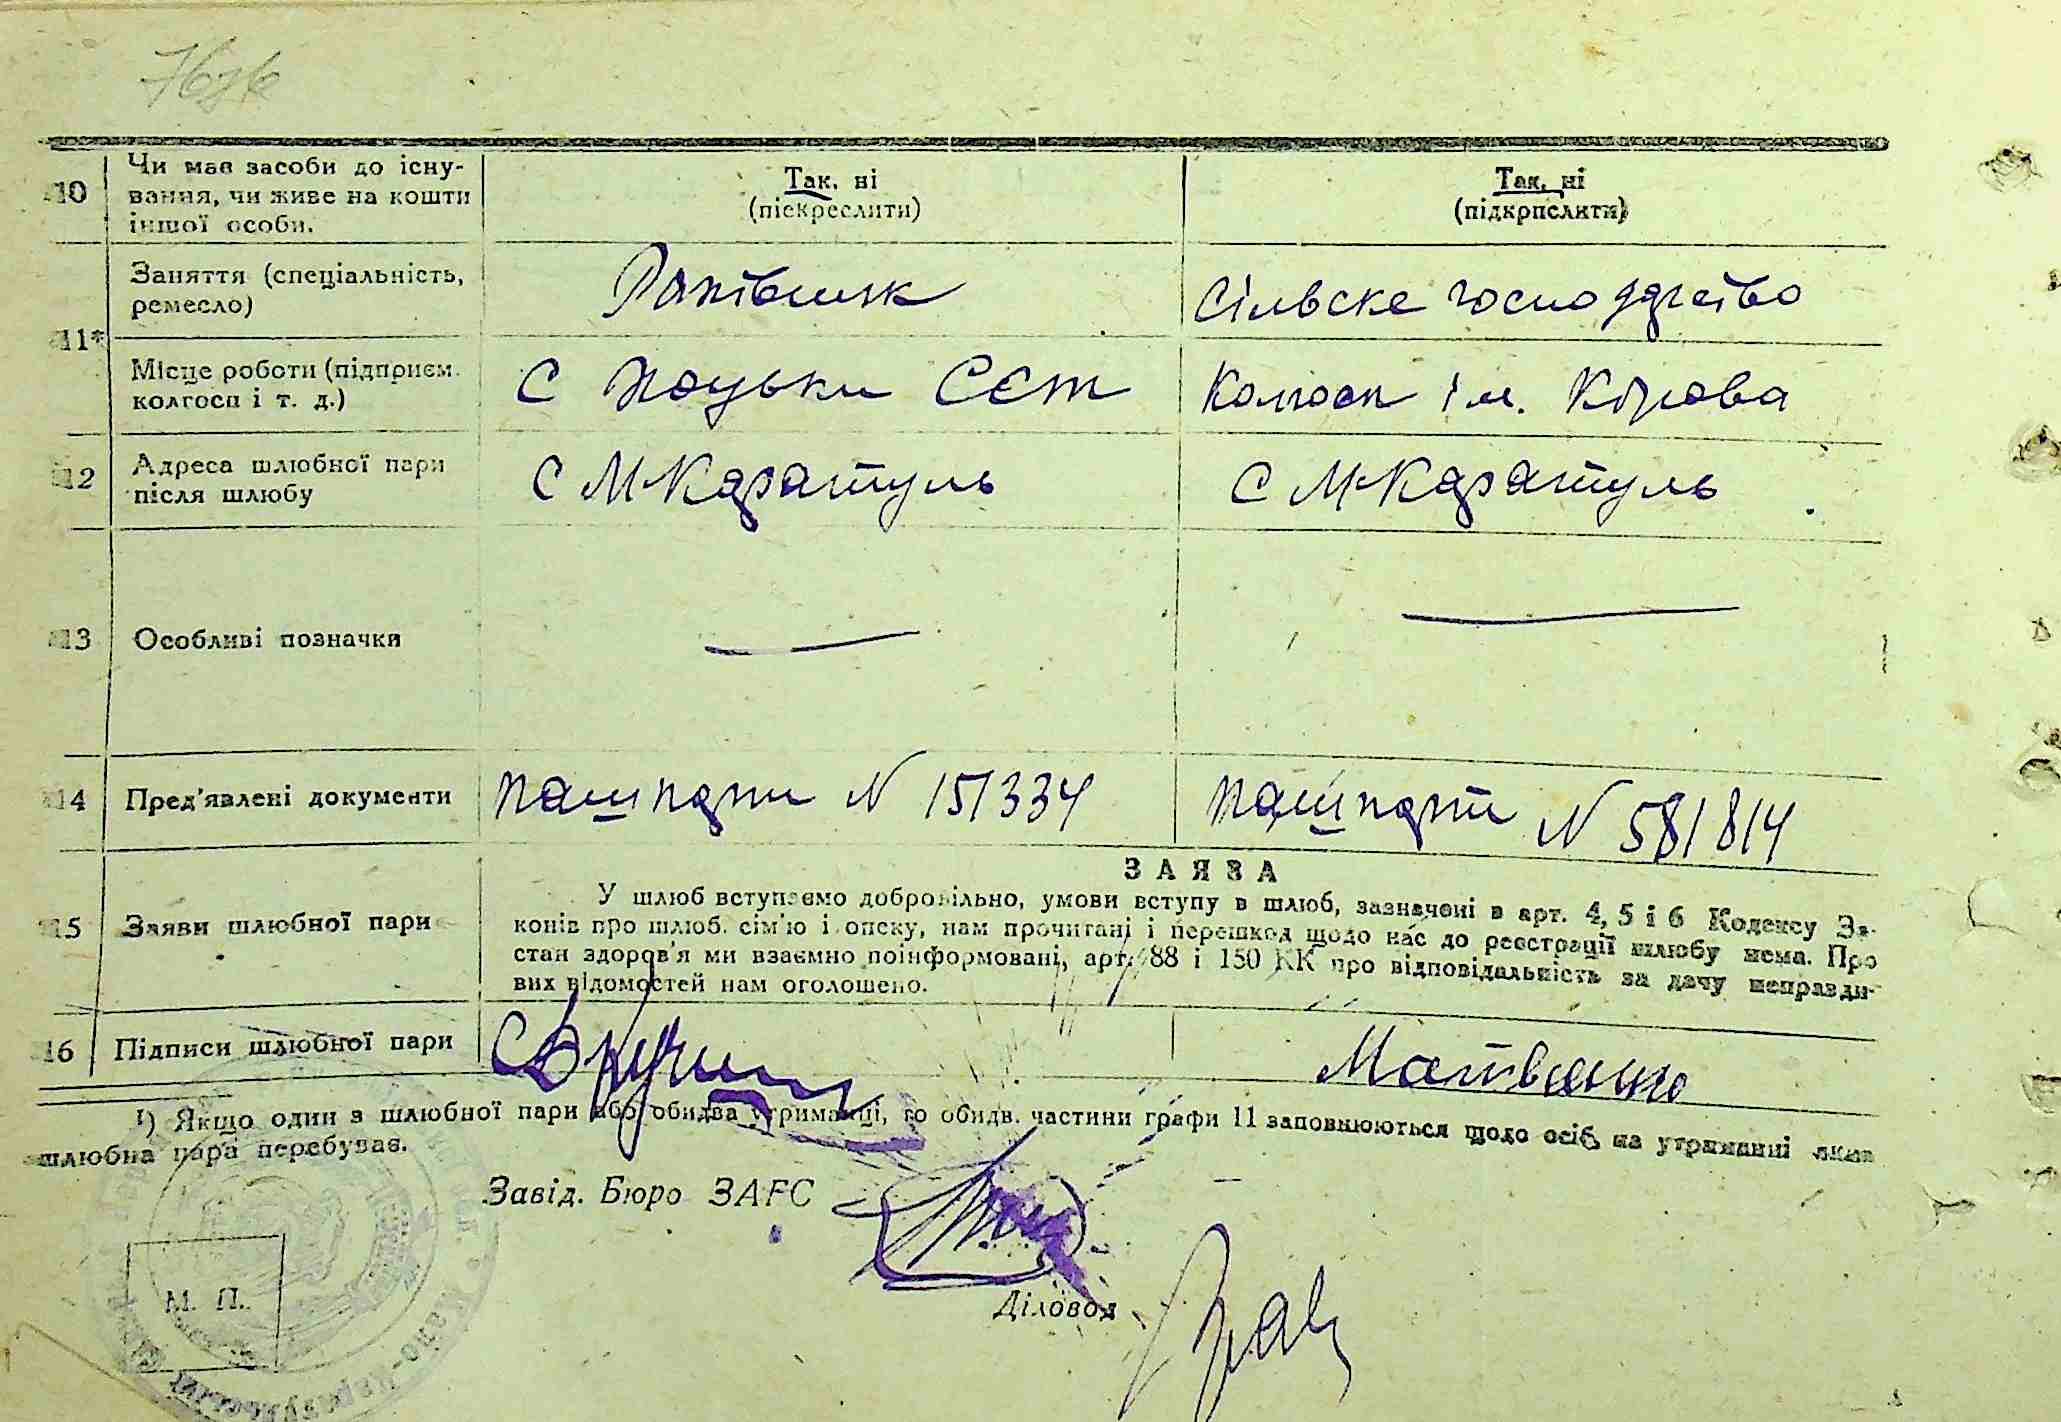 10 Чи має засоби до існу-
вання, чи живе на кошти
іншої особи.
Так, ні
(піскреслити)
Так, ні
(підкрпслити)
11* Заняття (спеціальність,
ремесло)
Рахівник
Сільске господарство
Місце роботи (підприєм.
колгосп і т. д.)
С Поцьки СЄТ
Колгосп ім. Кірова
12 Адреса шлюбної пари
після шлюбу
С М-Каратуль
С М-Каратуль
13 Особливі позначки
14 Пред'явлені документи
пашпорт N 151334
пашпорт N 581814
15 Заяви шлюбної пари
ЗАЯВА
У шлюб вступаємо добровільно, умови вступу в шлюб, зазначені в арт. 4, 5 і 6 Кодексу За-
конів про шлюб. сім'ю і опеку, нам прочитані і перешкод щодо нас до реєстрації шлюбу нема. Про
стан здоров'я ми взаємно поінформовані, арт. 88 і 150 КК про відповідальність за дачу неправди-
вих відомостей нам оголошено.
16 Підписи шлюбної пари
Матвієнко
¹) Якщо один з шлюбної пари або обидва утриманці, то обидв. частини графи 11 заповнюються щодо осіб, на утриманні яких
шлюбна пара перебуває.
Завід. Бюро ЗАГС
М. П.
Діловод